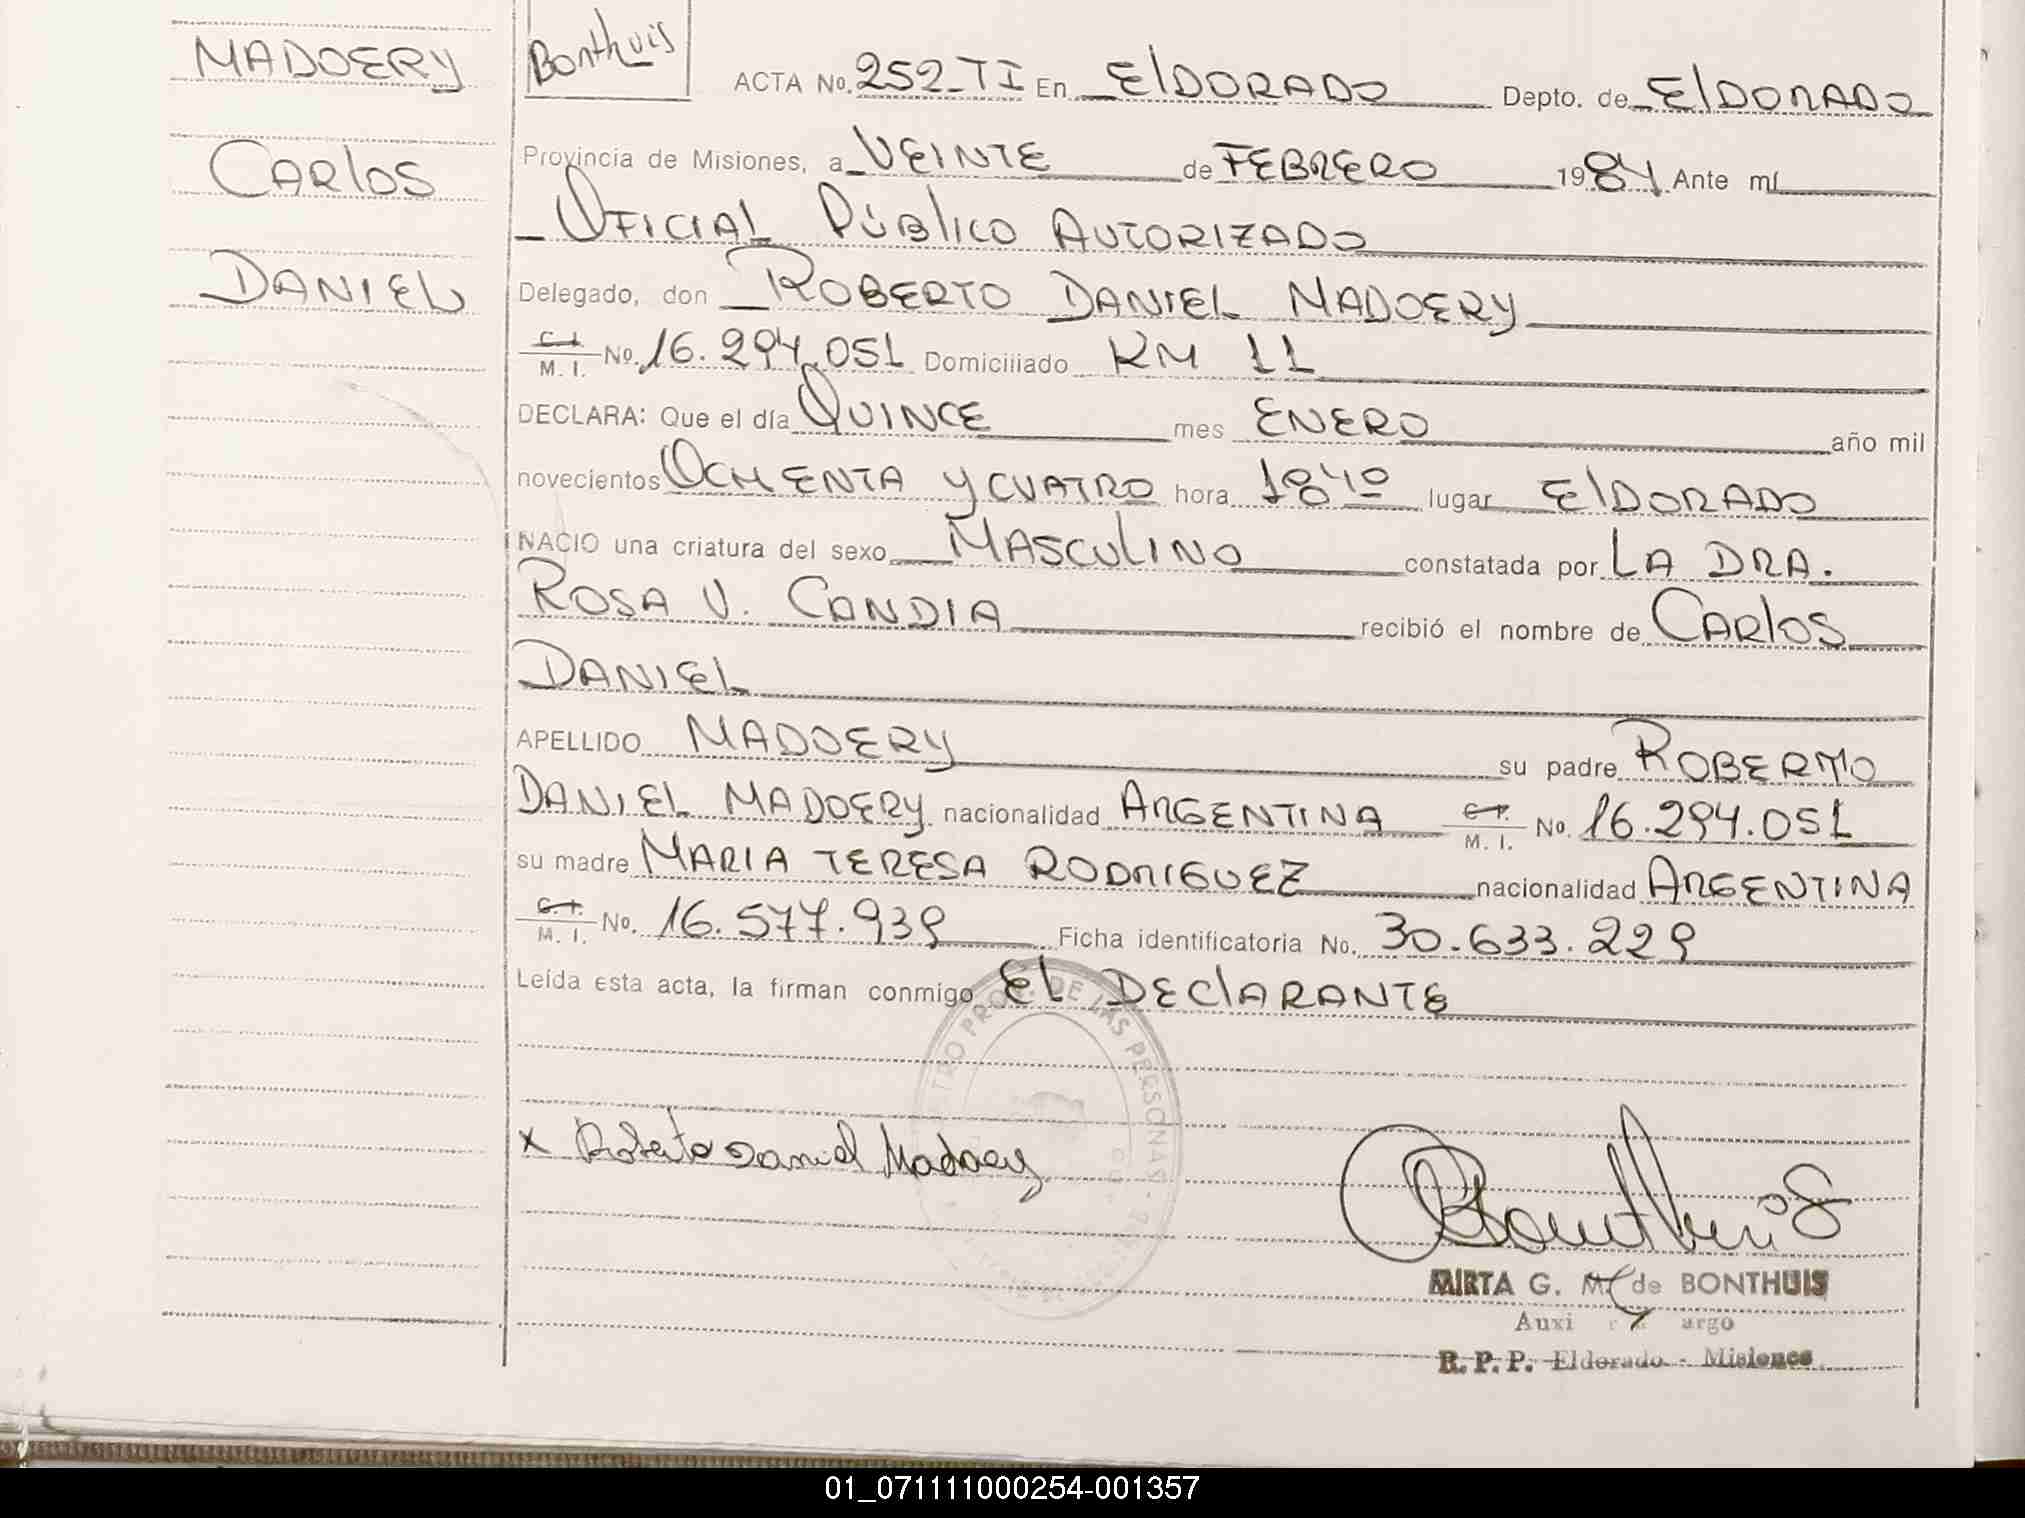 MADOERY
CARlOS
DANIEL
Bonthuis
ACTA No. 252-TI En ElDORADO Depto. de ElDORADO
Provincia de Misiones, a VEINTE de FEBRERO 1984 Ante mí
OFICIAL PÚBlICO AUTORIZADO
Delegado, don ROBERTO DANIEL MADOERY
C. I. M. I. No. 16.294.051 Domiciliado KM 11
DECLARA: Que el día QUINCE mes ENERO año mil
novecientos OCHENTA Y CUATRO hora 1840 lugar ElDORADO
NACIO una criatura del sexo MASCULINO constatada por LA DRA.
ROSA V. CANDIA recibió el nombre de CARlOS
DANIEL
APELLIDO MADOERY su padre ROBERTO
DANIEL MADOERY nacionalidad ARGENTINA C. I. M. I. No. 16.294.051
su madre MARIA TERESA RODRIGUEZ nacionalidad ARGENTINA
C. I. M. I. No. 16.577.939 Ficha identificatoria No. 30.633.229
Leída esta acta, la firman conmigo EL DEClARANTE
PROV. DE LAS PERSONAS
x Roberto Daniel Madoery
Bonthuis
MIRTA G. M. de BONTHUIS
R. P. P. Eldorado - Misiones
01_071111000254-001357